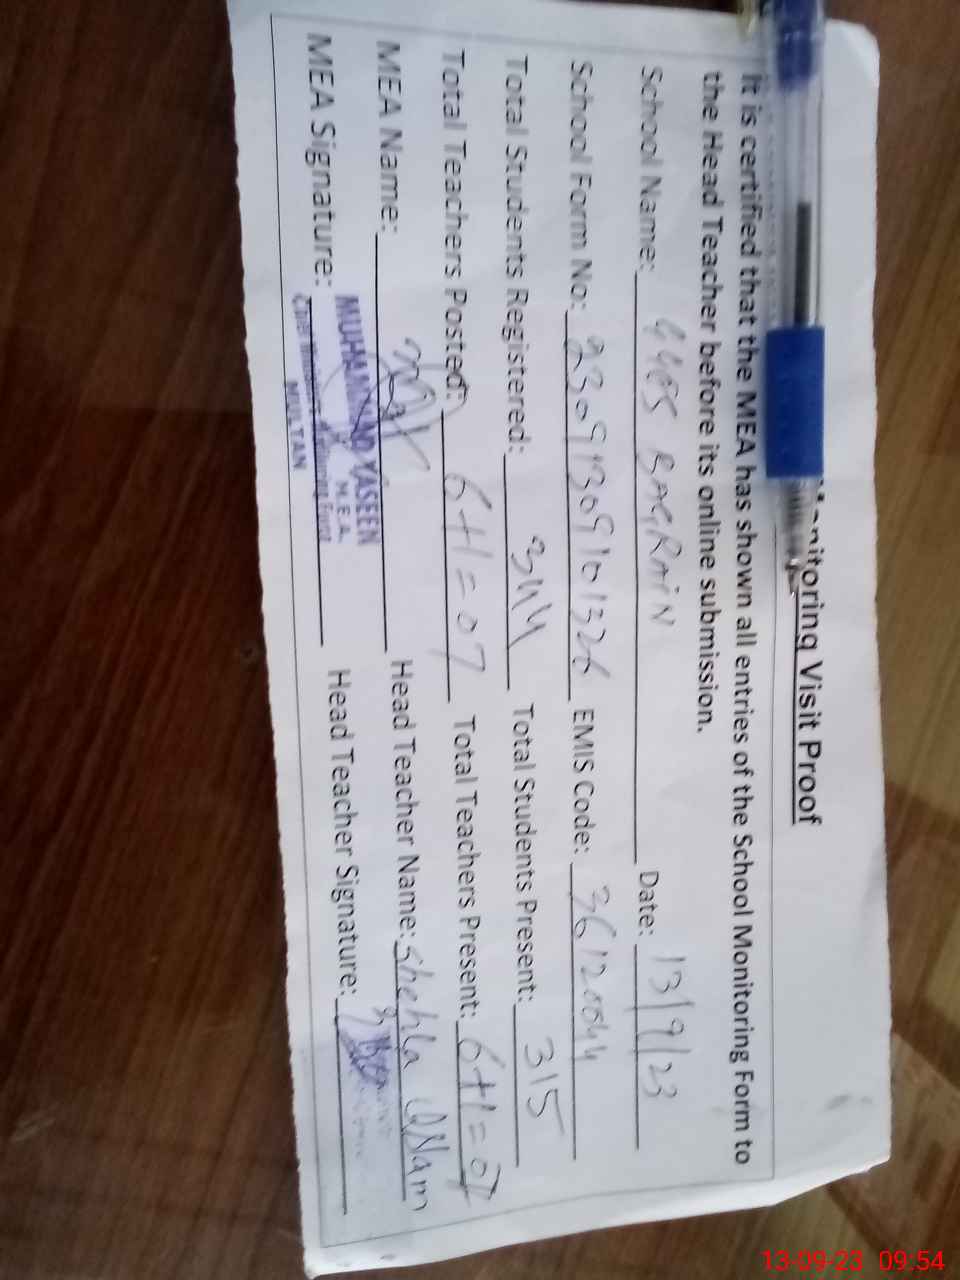 Monitoring Visit Proof
It is certified that the MEA has shown all entries of the School Monitoring Form to
the Head Teacher before its online submission.
School Name: GGES BAGRAIN Date: 13/9/23
School Form No: 23091309101326 EMIS Code: 36120044
Total Students Registered: 344 Total Students Present: 315
Total Teachers Posted: 6+1=07 Total Teachers Present: 6+1=07
MEA Name: Head Teacher Name: Shehla
MEA Signature: Head Teacher Signature:
MUHAMMAD YASEEN
M.E.A.
Chief Minister's Monitoring Force
MULTAN
13-09-23 09:54